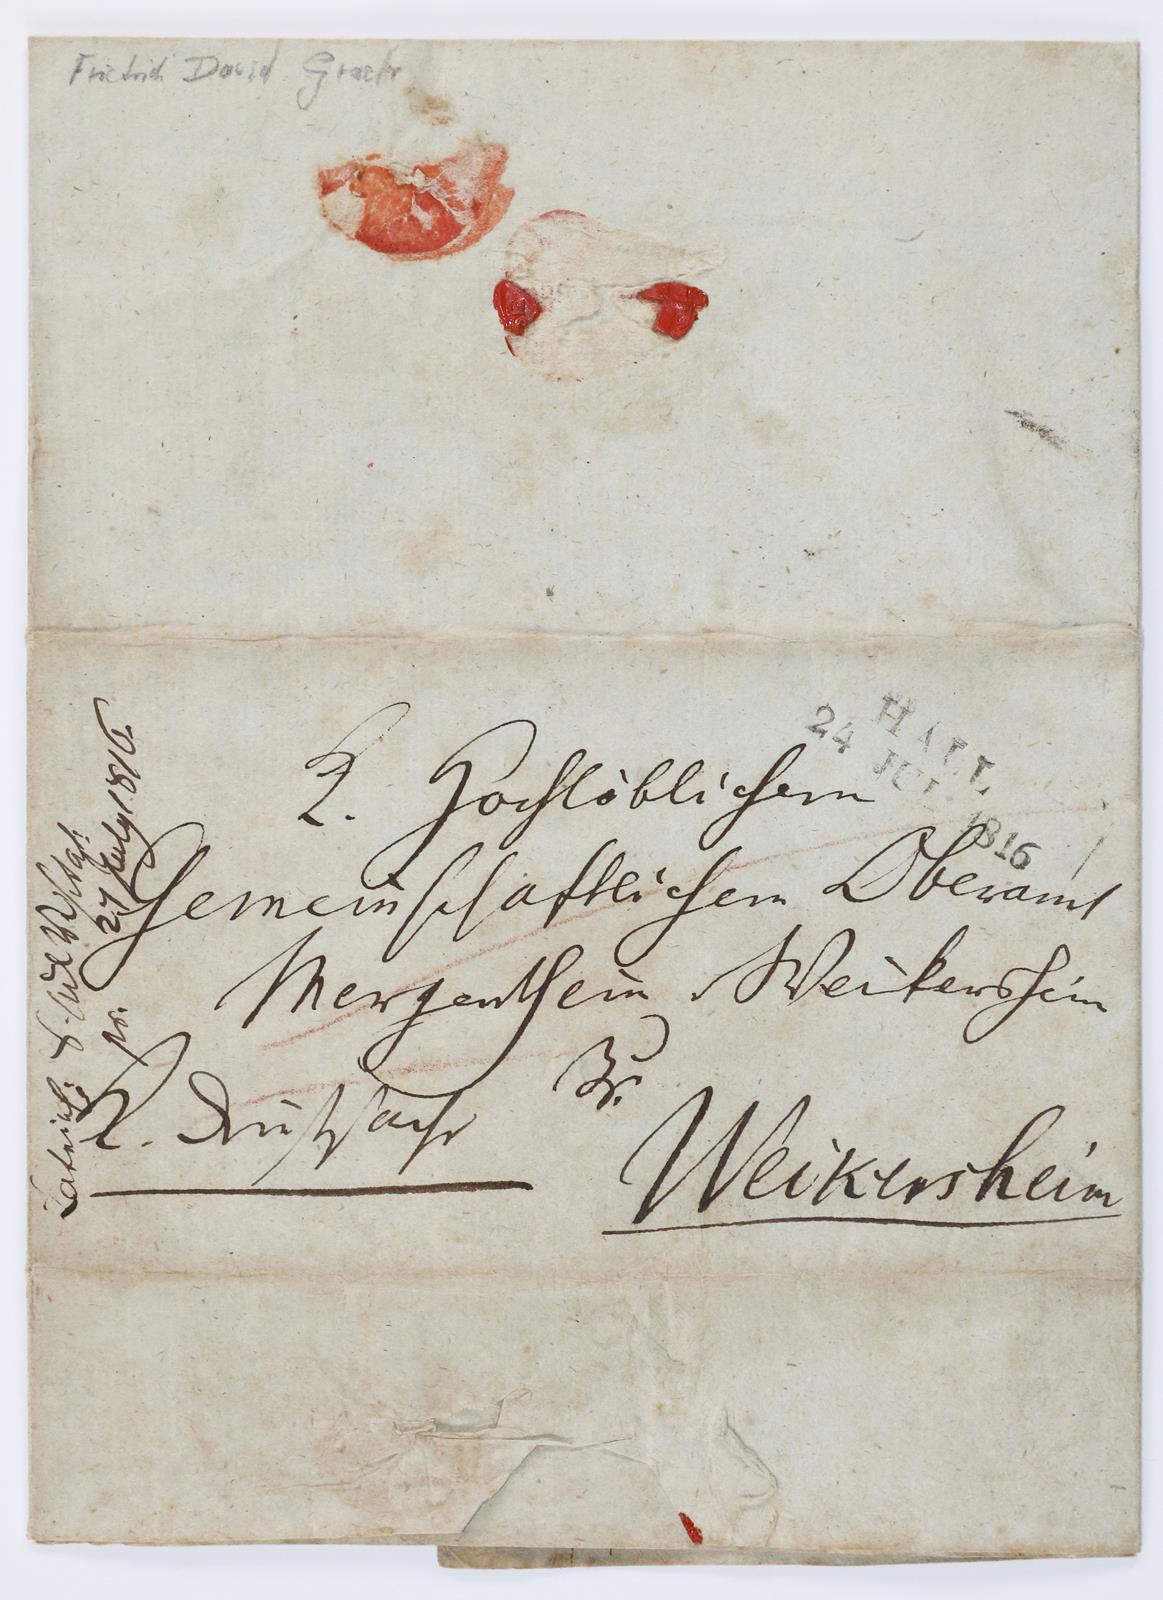 Friedrich David Graeter
HALL
24 JUL 1816
K. Hochlöblichem
Gemeinschaftlichem Oberamt
Mergentheim Weikersheim
K. Dienstsache
Zu
Weikersheim
Latein:
pr. 27 July 1816.